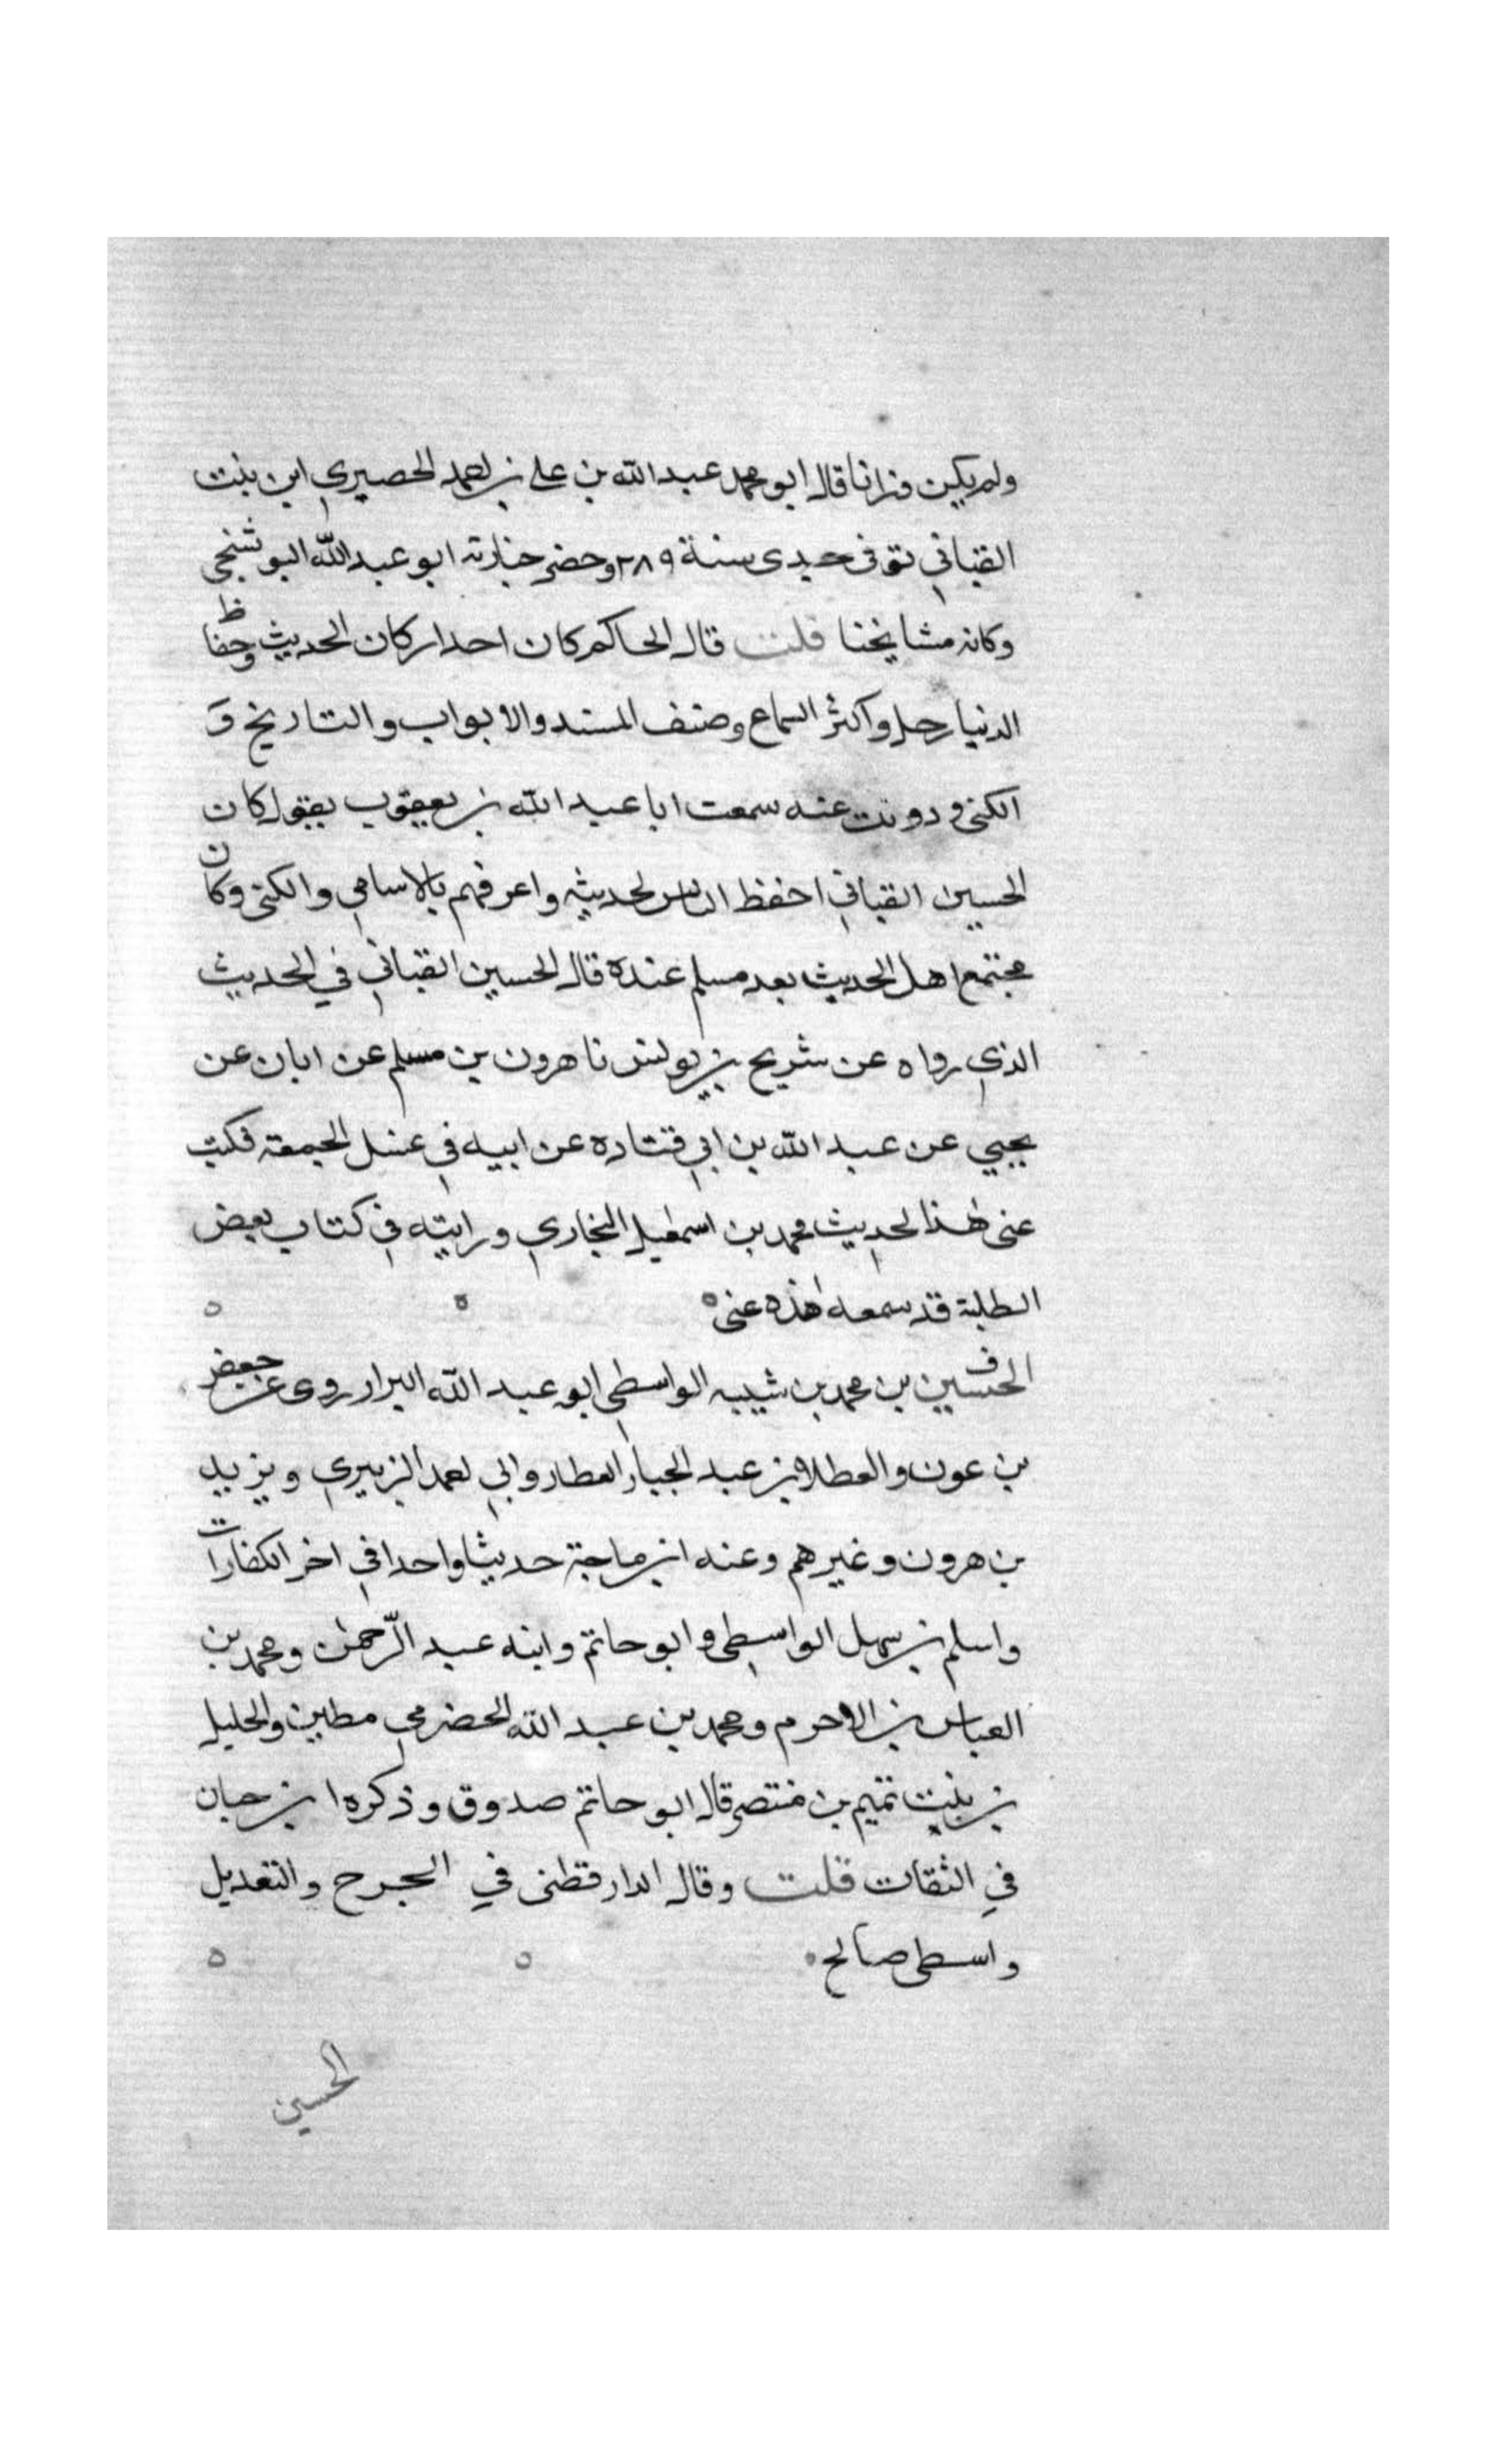 ولم يكن وزانا قال ابو محمد عبد الله بن علي بن احمد الحصيري ابن بنت
القباني توفى جدى سنة ٢٨٩ وحضر جنازته ابو عبد الله البوشنجي
وكانه مشايخنا قلت قال الحاكم كان احد اركان الحديث وحفاظ
الدنيا رحل واكثر السماع وصنف المسند والابواب والتاريخ و
الكنى ودونت عنه سمعت ابا عبد الله بن يعقوب يقول كان
الحسين القباني احفظ الناس لحديثه واعرفهم بالاسامي والكنى وكان
مجتمع اهل الحديث بعد مسلم عنده قال الحسين القباني في الحديث
الذي رواه عن شريح بن يونس نا هرون بن مسلم عن ابان عن
يحيي عن عبد الله بن ابي قتاده عن ابيه في غسل الجمعة فكتب
عنى هذا لحديث محمد بن اسمعيل البخاري ورايته في كتاب بعض
الطلبة قد سمعه هذه عنى
ق الحسين بن محمد بن شيبه الواسطى ابو عبد الله البزار روى عن جعفر
بن عون والعطلا بن عبد الجبار العطار وابي احمد الزبيري ويزيد
بن هرون وغيرهم وعنه ابن ماجة حديثا واحدا في اخر الكفارات
واسلم بن سهل الواسطى وابو حاتم وابنه عبد الرّحمن ومحمد بن
العباس بن الاحرم ومحمد بن عبد الله الحضرمي مطين والخليل
بن بنت تميم بن منتصر قال ابو حاتم صدوق وذكره ابن حبان
في الثقات قلت وقال الدارقطنى في الجرح والتعديل
واسطى صالح
الحسين